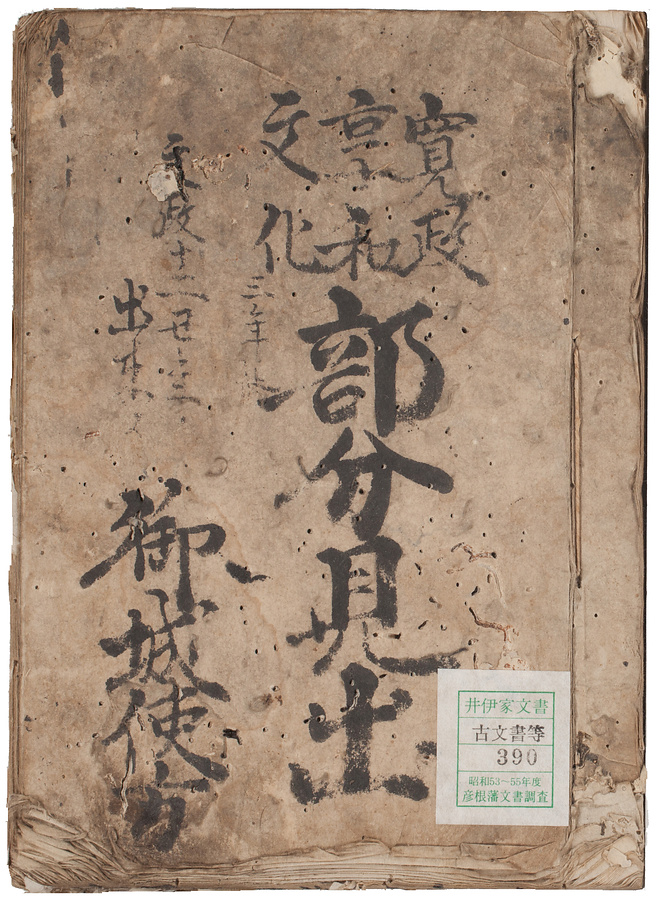 寛政
享和
文化
三年迄
部分見出
文政十二丑年
出来
御城使方
井伊家文書
古文書等
390
昭和53~55年度
彦根藩文書調査